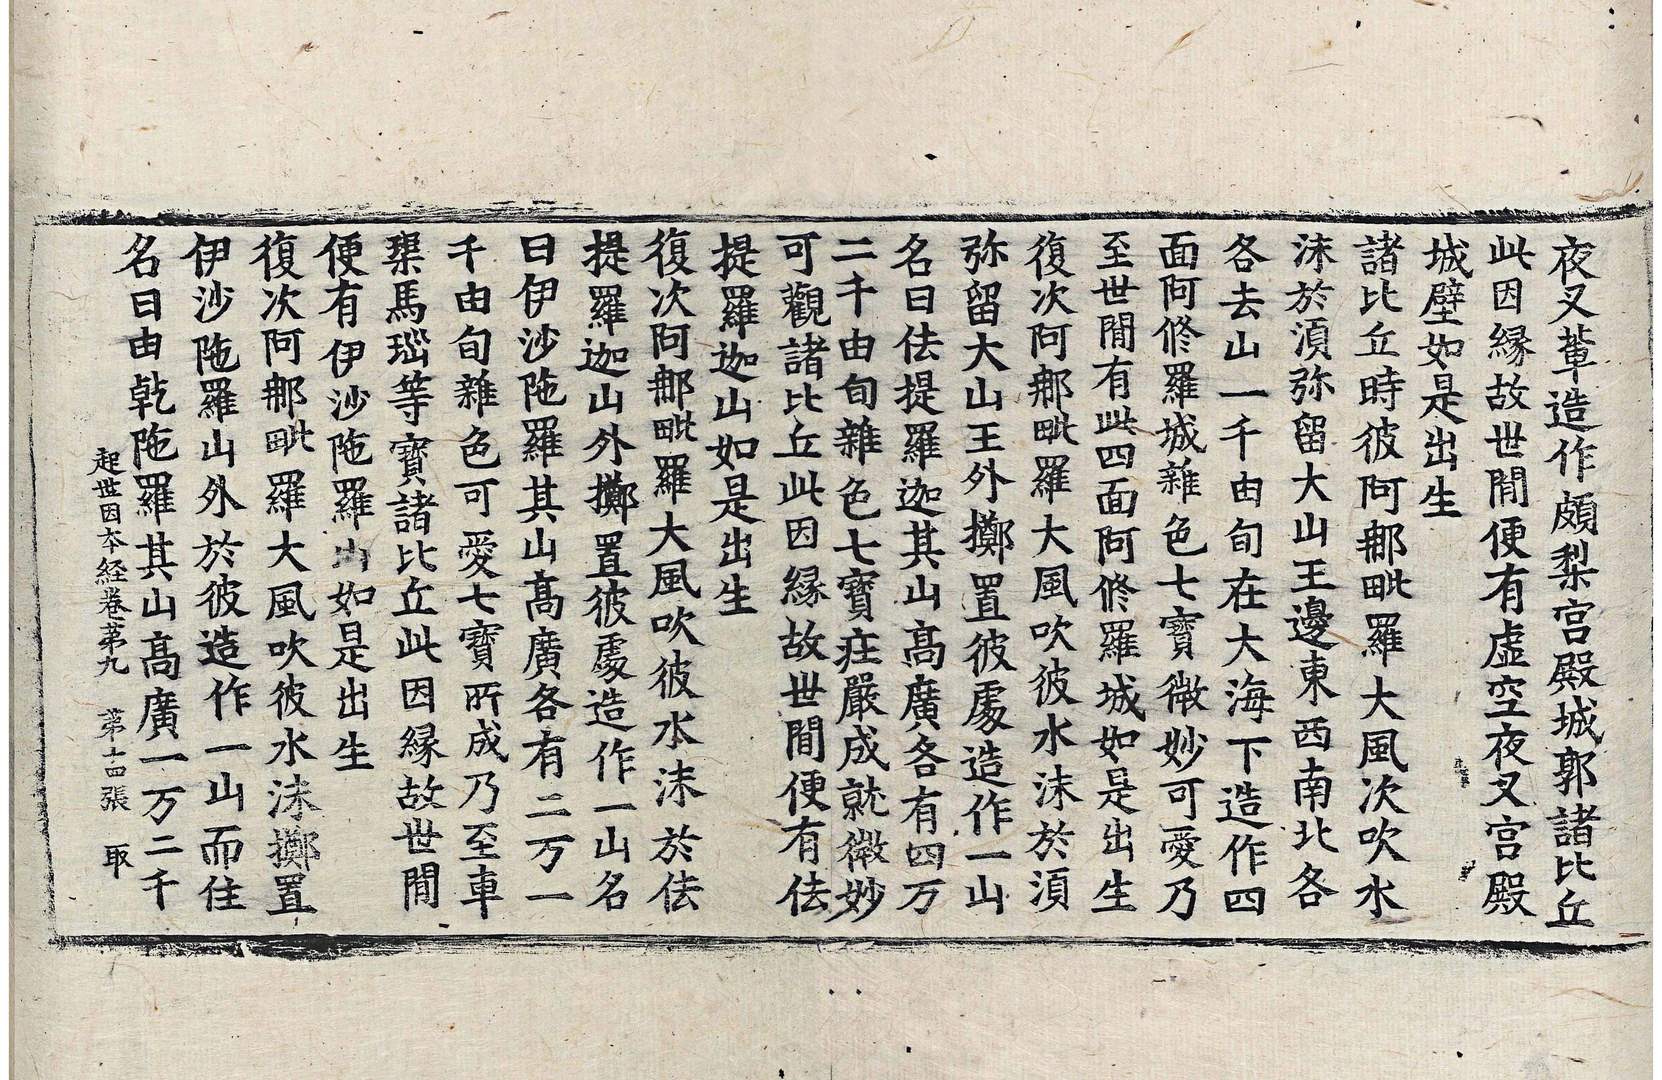 夜叉輩造作頗梨宮殿城郭諸比丘
此因縁故世間便有虛空夜叉宮殿
城壁如是出生
諸比丘時彼阿那毗羅大風次吹水
沫於須弥留大山王邊東西南北各
各去山一千由旬在大海下造作四
面阿修羅城雜色七寶微妙可愛乃
至世間有此四面阿修羅城如是出生
復次阿那毗羅大風吹彼水沫於須
弥留大山王外擲置彼處造作一山
名曰佉提羅迦其山高廣各有四万
二千由旬雜色七寶莊嚴成就微妙
可觀諸比丘此因縁故世間便有佉
提羅迦山如是出生
復次阿那毗羅大風吹彼水沫於佉
提羅迦山外擲置彼處造作一山名
曰伊沙陁羅其山高廣各有二万一
千由旬雜色可愛七寶所成乃至車
𤦲馬瑙等寶諸比丘此因縁故世間
便有伊沙陁羅山如是出生
復次阿那毗羅大風吹彼水沫擲置
伊沙陁羅山外於彼造作一山而住
名曰由乾陁羅其山高廣一万二千
起世因本経卷第九 第十四張 取